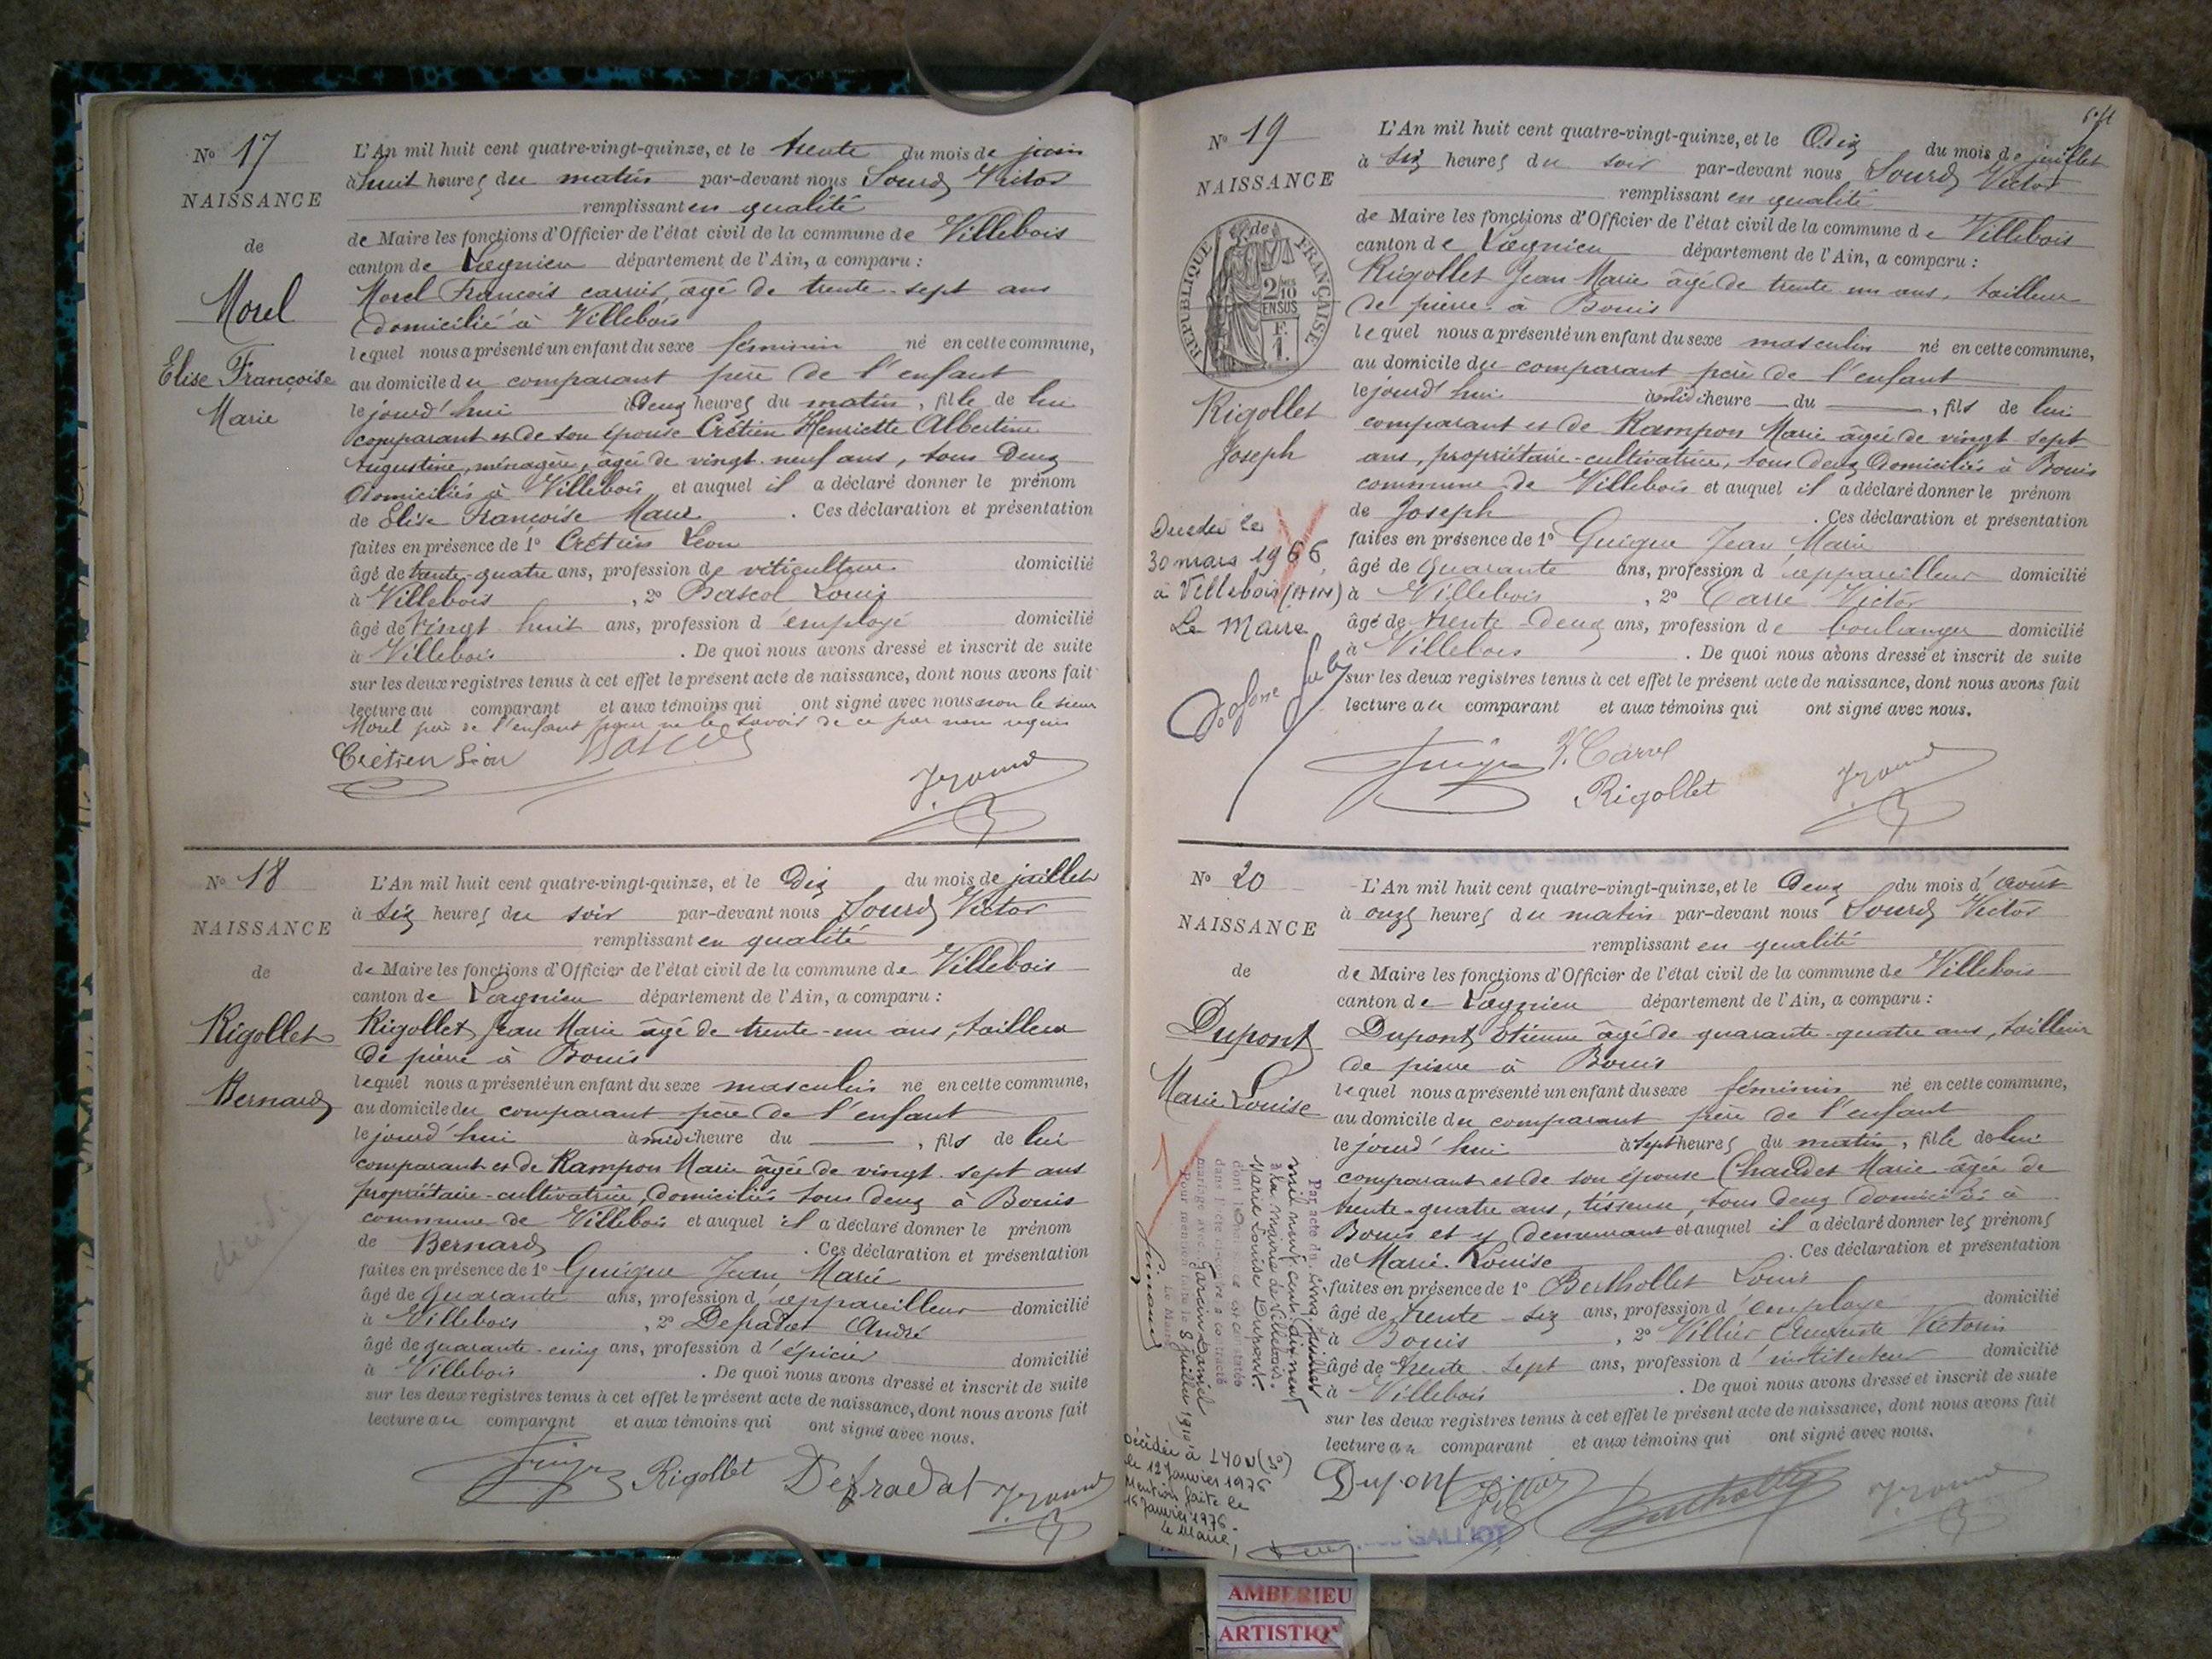 N° 17
NAISSANCE
de
Morel
Elise Françoise
Marie
L'An mil huit cent quatre-vingt-quinze, et le trente du mois de juin
à huit heures du matin par-devant nous Sourd Victor
remplissant en qualité
de Maire les fonctions d'Officier de l'état civil de la commune de Villebois
canton de Lagnieu département de l'Ain, a comparu :
Morel François carrier, âgé de trente-sept ans
domicilié à Villebois
lequel nous a présenté un enfant du sexe féminin né en cette commune,
au domicile du comparant père de l'enfant
le jourd'hui à deux heures du matin, fille de lui
comparant et de son épouse Crétien Henriette Albertine
Augustine, ménagère, âgée de vingt-neuf ans, tous deux
domiciliés à Villebois et auquel il a déclaré donner le prénom
de Elise Françoise Marie . Ces déclaration et présentation
faites en présence de 1° Crétien Léon
âgé de trente-quatre ans, profession de viticulteur domicilié
à Villebois , 2° Bascol Louis
âgé de vingt huit ans, profession d'employé domicilié
à Villebois . De quoi nous avons dressé et inscrit de suite
sur les deux registres tenus à cet effet le présent acte de naissance, dont nous avons fait
lecture au comparant et aux témoins qui ont signé avec nous non le sieur
Morel père de l'enfant pour ne le savoir de ce par nous requis
Crétien Léon
N° 18
NAISSANCE
de
Rigollet
Bernard
L'An mil huit cent quatre-vingt-quinze, et le Dix du mois de juillet
à six heures du soir par-devant nous Sourd Victor
remplissant en qualité
de Maire les fonctions d'Officier de l'état civil de la commune de Villebois
canton de Lagnieu département de l'Ain, a comparu :
Rigollet Jean Marie âgé de trente-un ans, tailleur
de pierre à Bouis
lequel nous a présenté un enfant du sexe masculin né en cette commune,
au domicile du comparant père de l'enfant
le jourd'hui à midi heure du , fils de lui
comparant et de Rampon Marie âgée de vingt-sept ans
propriétaire-cultivatrice, domiciliés tous deux à Bouis
commune de Villebois et auquel il a déclaré donner le prénom
de Bernard . Ces déclaration et présentation
faites en présence de 1° Guigue Jean Marie
âgé de quarante ans, profession d'appareilleur domicilié
à Villebois , 2° Defradat André
âgé de quarante-cinq ans, profession d'épicier domicilié
à Villebois . De quoi nous avons dressé et inscrit de suite
sur les deux registres tenus à cet effet le présent acte de naissance, dont nous avons fait
lecture au comparant et aux témoins qui ont signé avec nous.
Rigollet Defradat
N° 19
NAISSANCE
RÉPUBLIQUE FRANÇAISE
2/10 EN SUS
F. 1.
Rigollet
Joseph
30 mars 1966
à Villebois (Ain)
Le Maire
L'An mil huit cent quatre-vingt-quinze, et le Dix du mois de juillet
à six heures du soir par-devant nous Sourd Victor
remplissant en qualité
de Maire les fonctions d'Officier de l'état civil de la commune de Villebois
canton de Lagnieu département de l'Ain, a comparu :
Rigollet Jean Marie âgé de trente un ans, tailleur
de pierre à Bouis
lequel nous a présenté un enfant du sexe masculin né en cette commune,
au domicile du comparant père de l'enfant
le jourd'hui à midi heure du , fils de lui
comparant et de Rampon Marie âgée de vingt-sept
ans, propriétaire-cultivatrice, tous deux domiciliés à Bouis
commune de Villebois et auquel il a déclaré donner le prénom
de Joseph . Ces déclaration et présentation
faites en présence de 1° Guigue Jean Marie
âgé de quarante ans, profession d'appareilleur domicilié
à Villebois , 2° Carre Victor
âgé de trente-deux ans, profession de boulanger domicilié
à Villebois . De quoi nous avons dressé et inscrit de suite
sur les deux registres tenus à cet effet le présent acte de naissance, dont nous avons fait
lecture au comparant et aux témoins qui ont signé avec nous.
V. Carre
Rigollet
N° 20
NAISSANCE
de
Dupont
Marie Louise
Par acte du cinq juillet
mil neuf cent dix neuf
à la mairie de Villebois.
Marie Louise Dupont.
Décédée à LYON (3°)
le 12 Janvier 1976
Mention faite le
16 Janvier 1976.
Le Maire,
L'An mil huit cent quatre-vingt-quinze, et le deux du mois d'août
à onze heures du matin par-devant nous Sourd Victor
remplissant en qualité
de Maire les fonctions d'Officier de l'état civil de la commune de Villebois
canton de Lagnieu département de l'Ain, a comparu :
Dupont Etienne âgé de quarante-quatre ans, tailleur
de pierre à Bouis
lequel nous a présenté un enfant du sexe féminin né en cette commune,
au domicile du comparant père de l'enfant
le jourd'hui à sept heures du matin, fille de lui
comparant et de son épouse Chaudet Marie âgée de
trente-quatre ans, tisseuse, tous deux domiciliés à
Bouis et y demeurant et auquel il a déclaré donner les prénoms
de Marie Louise . Ces déclaration et présentation
faites en présence de 1° Berthollet Louis
âgé de trente-six ans, profession d'employé domicilié
à Bouis , 2° Villier Auguste Victorin
âgé de trente-sept ans, profession d'instituteur domicilié
à Villebois . De quoi nous avons dressé et inscrit de suite
sur les deux registres tenus à cet effet le présent acte de naissance, dont nous avons fait
lecture au comparant et aux témoins qui ont signé avec nous.
Dupont
AMBERIEU
ARTISTIQ